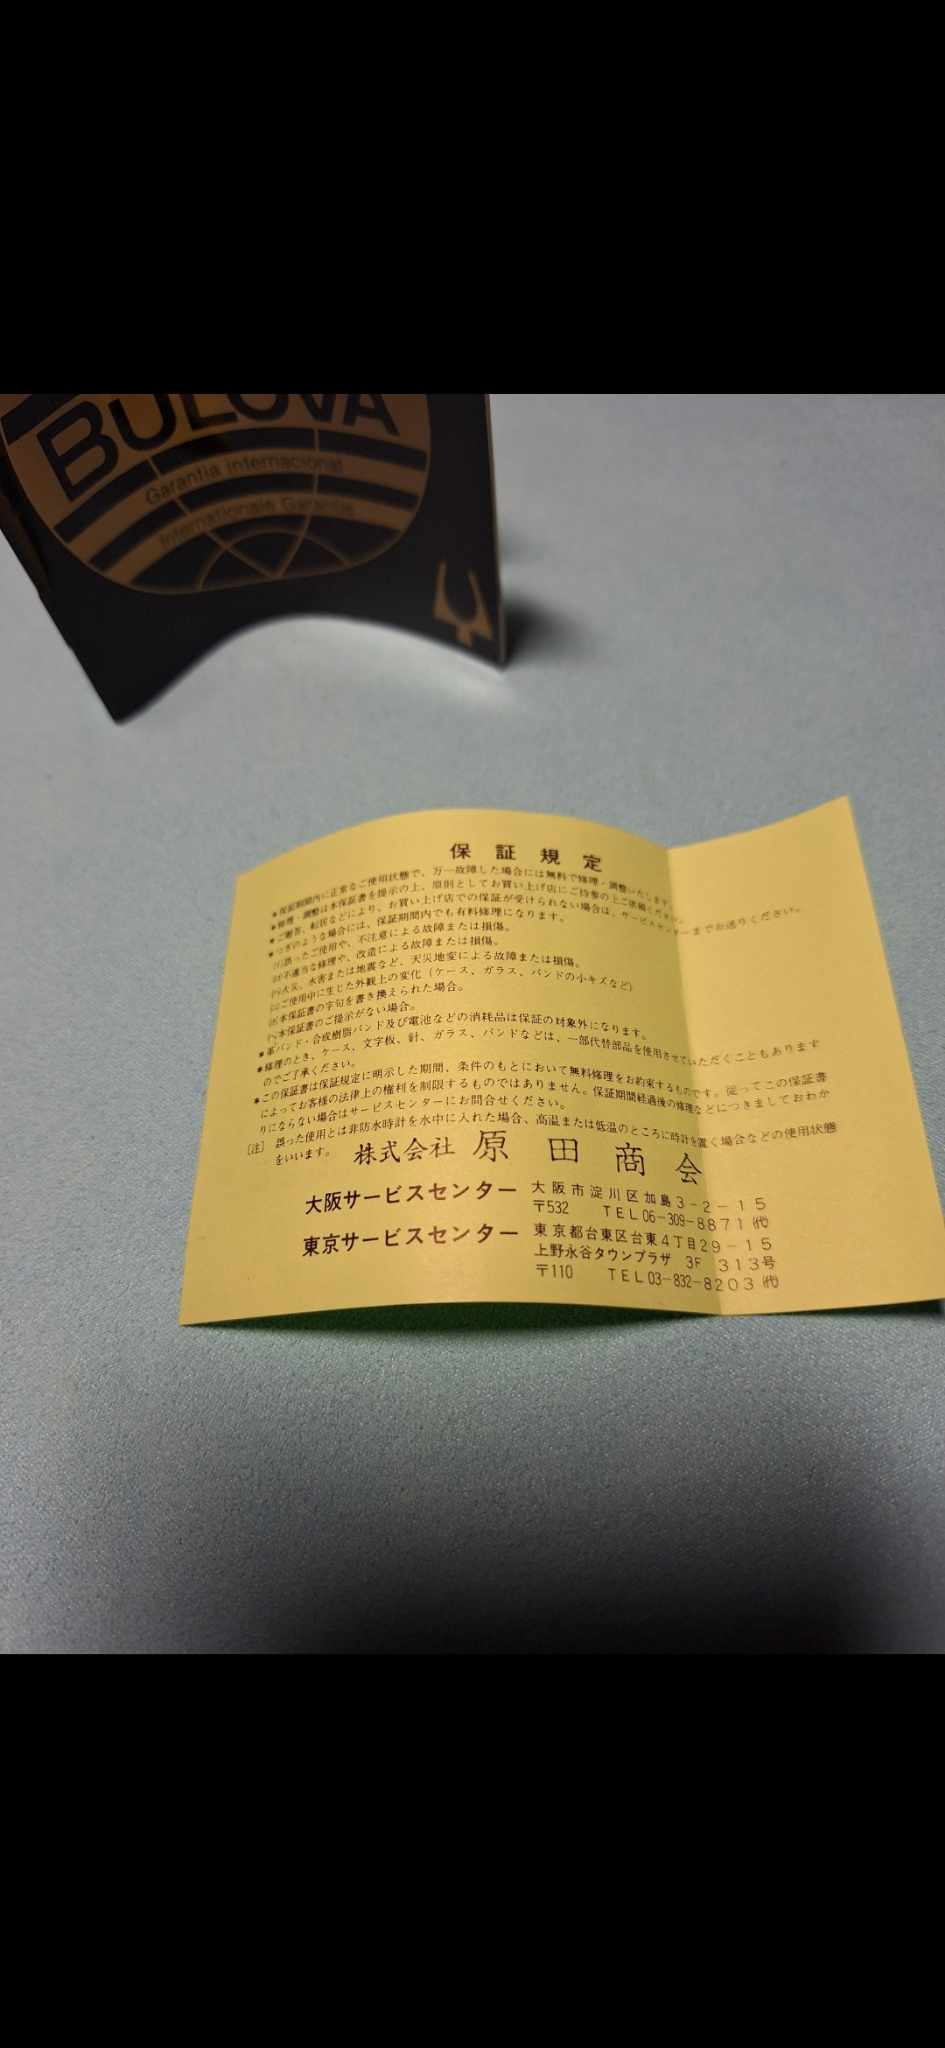 BULOVA
Garantia Internacional
Internationale Garantie
保証規定
*保証期間内に正常なご使用状態で、万一故障した場合には無料で修理・調整いたします。
*修理・調整は本保証書を提示の上、原則としてお買い上げ店にご持参の上ご依頼ください。
*ご贈答、転居などにより、お買い上げ店での保証が受けられない場合は、サービスセンターまでお送りください。
*つぎのような場合には、保証期間内でも有料修理になります。
(イ)誤ったご使用や、不注意による故障または損傷。
(ロ)不適当な修理や、改造による故障または損傷。
(ハ)火災、水害または地震など、天災地変による故障または損傷。
(ニ)ご使用中に生じた外観上の変化(ケース、ガラス、バンドの小キズなど)
(ホ)本保証書の字句を書き換えられた場合。
(ヘ)本保証書のご提示がない場合。
*革バンド・合成樹脂バンド及び電池などの消耗品は保証の対象外になります。
*修理のとき、ケース、文字板、針、ガラス、バンドなどは、一部代替部品を使用させていただくこともあります
のでご了承ください。
*この保証書は保証規定に明示した期間、条件のもとにおいて無料修理をお約束するものです。従ってこの保証書
によってお客様の法律上の権利を制限するものではありません。保証期間経過後の修理などにつきましておわか
りにならない場合はサービスセンターにお問合せください。
[注] 誤った使用とは非防水時計を水中に入れた場合、高温または低温のところに時計を置く場合などの使用状態
をいいます。
株式会社 原田商会
大阪サービスセンター 大阪市淀川区加島3-2-15
〒532 TEL06-309-8871(代)
東京サービスセンター 東京都台東区台東4丁目29-15
上野永谷タウンプラザ 3F 313号
〒110 TEL03-832-8203(代)